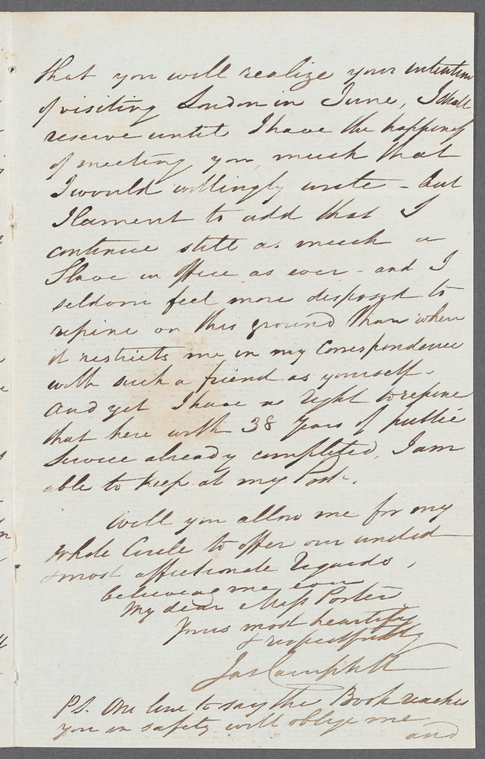 that you will realize your intention
of visiting London in June, I shall
reserve until I have the happiness
of meeting you, much that
I would willingly write - but
I lament to add that I
continue still as much a
Slave in Office as ever - and I
seldom feel more disposed to
repine on this ground than when
it restricts me in my Correspondence
with such a friend as yourself.
And yet I have no right to repine
that here with 38 Years of public
Service already completed, I am
able to keep at my Post.
Will you allow me for my
whole Circle to offer our united
& most affectionate regards,
believing me ever
My dear Miss Porter
Yours most heartily
& respectfully
Jas Campbell
P.S. One line to say the Book reaches
you in safety will oblige me
and